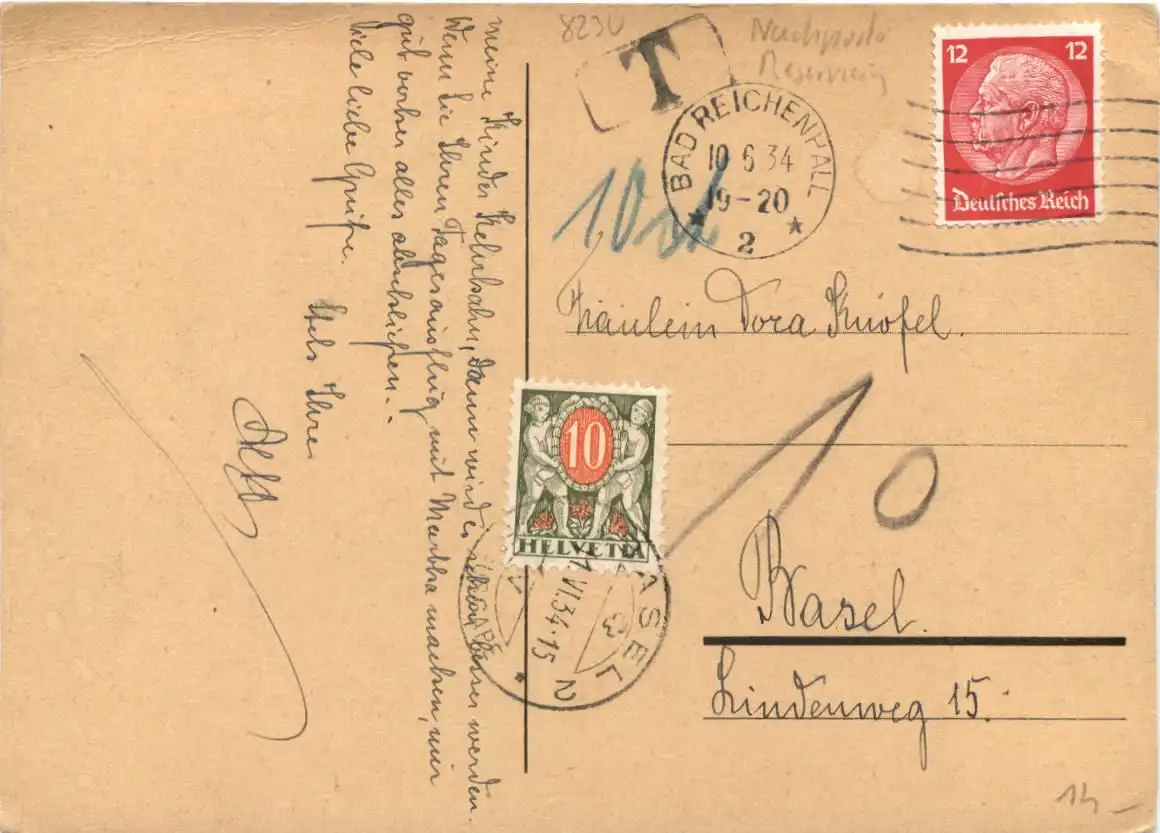 meine Kinder Kehrbahn, dann wird es schon besser werden.
Wenn Sie Ihren Tagesausflug mit Martha machen, nur
gut vorher alles abschließen.-
Viele liebe Grüße.
Stets Ihre
8230
T
Nachporto
BAD REICHENHALL
10 6 34
19-20
2
10
12 12
Deutsches Reich
Fräulein Dora Knöfel.
10
HELVETIA
10
BASEL 2
VI.34.15
Basel.
Lindenweg 15.
14-